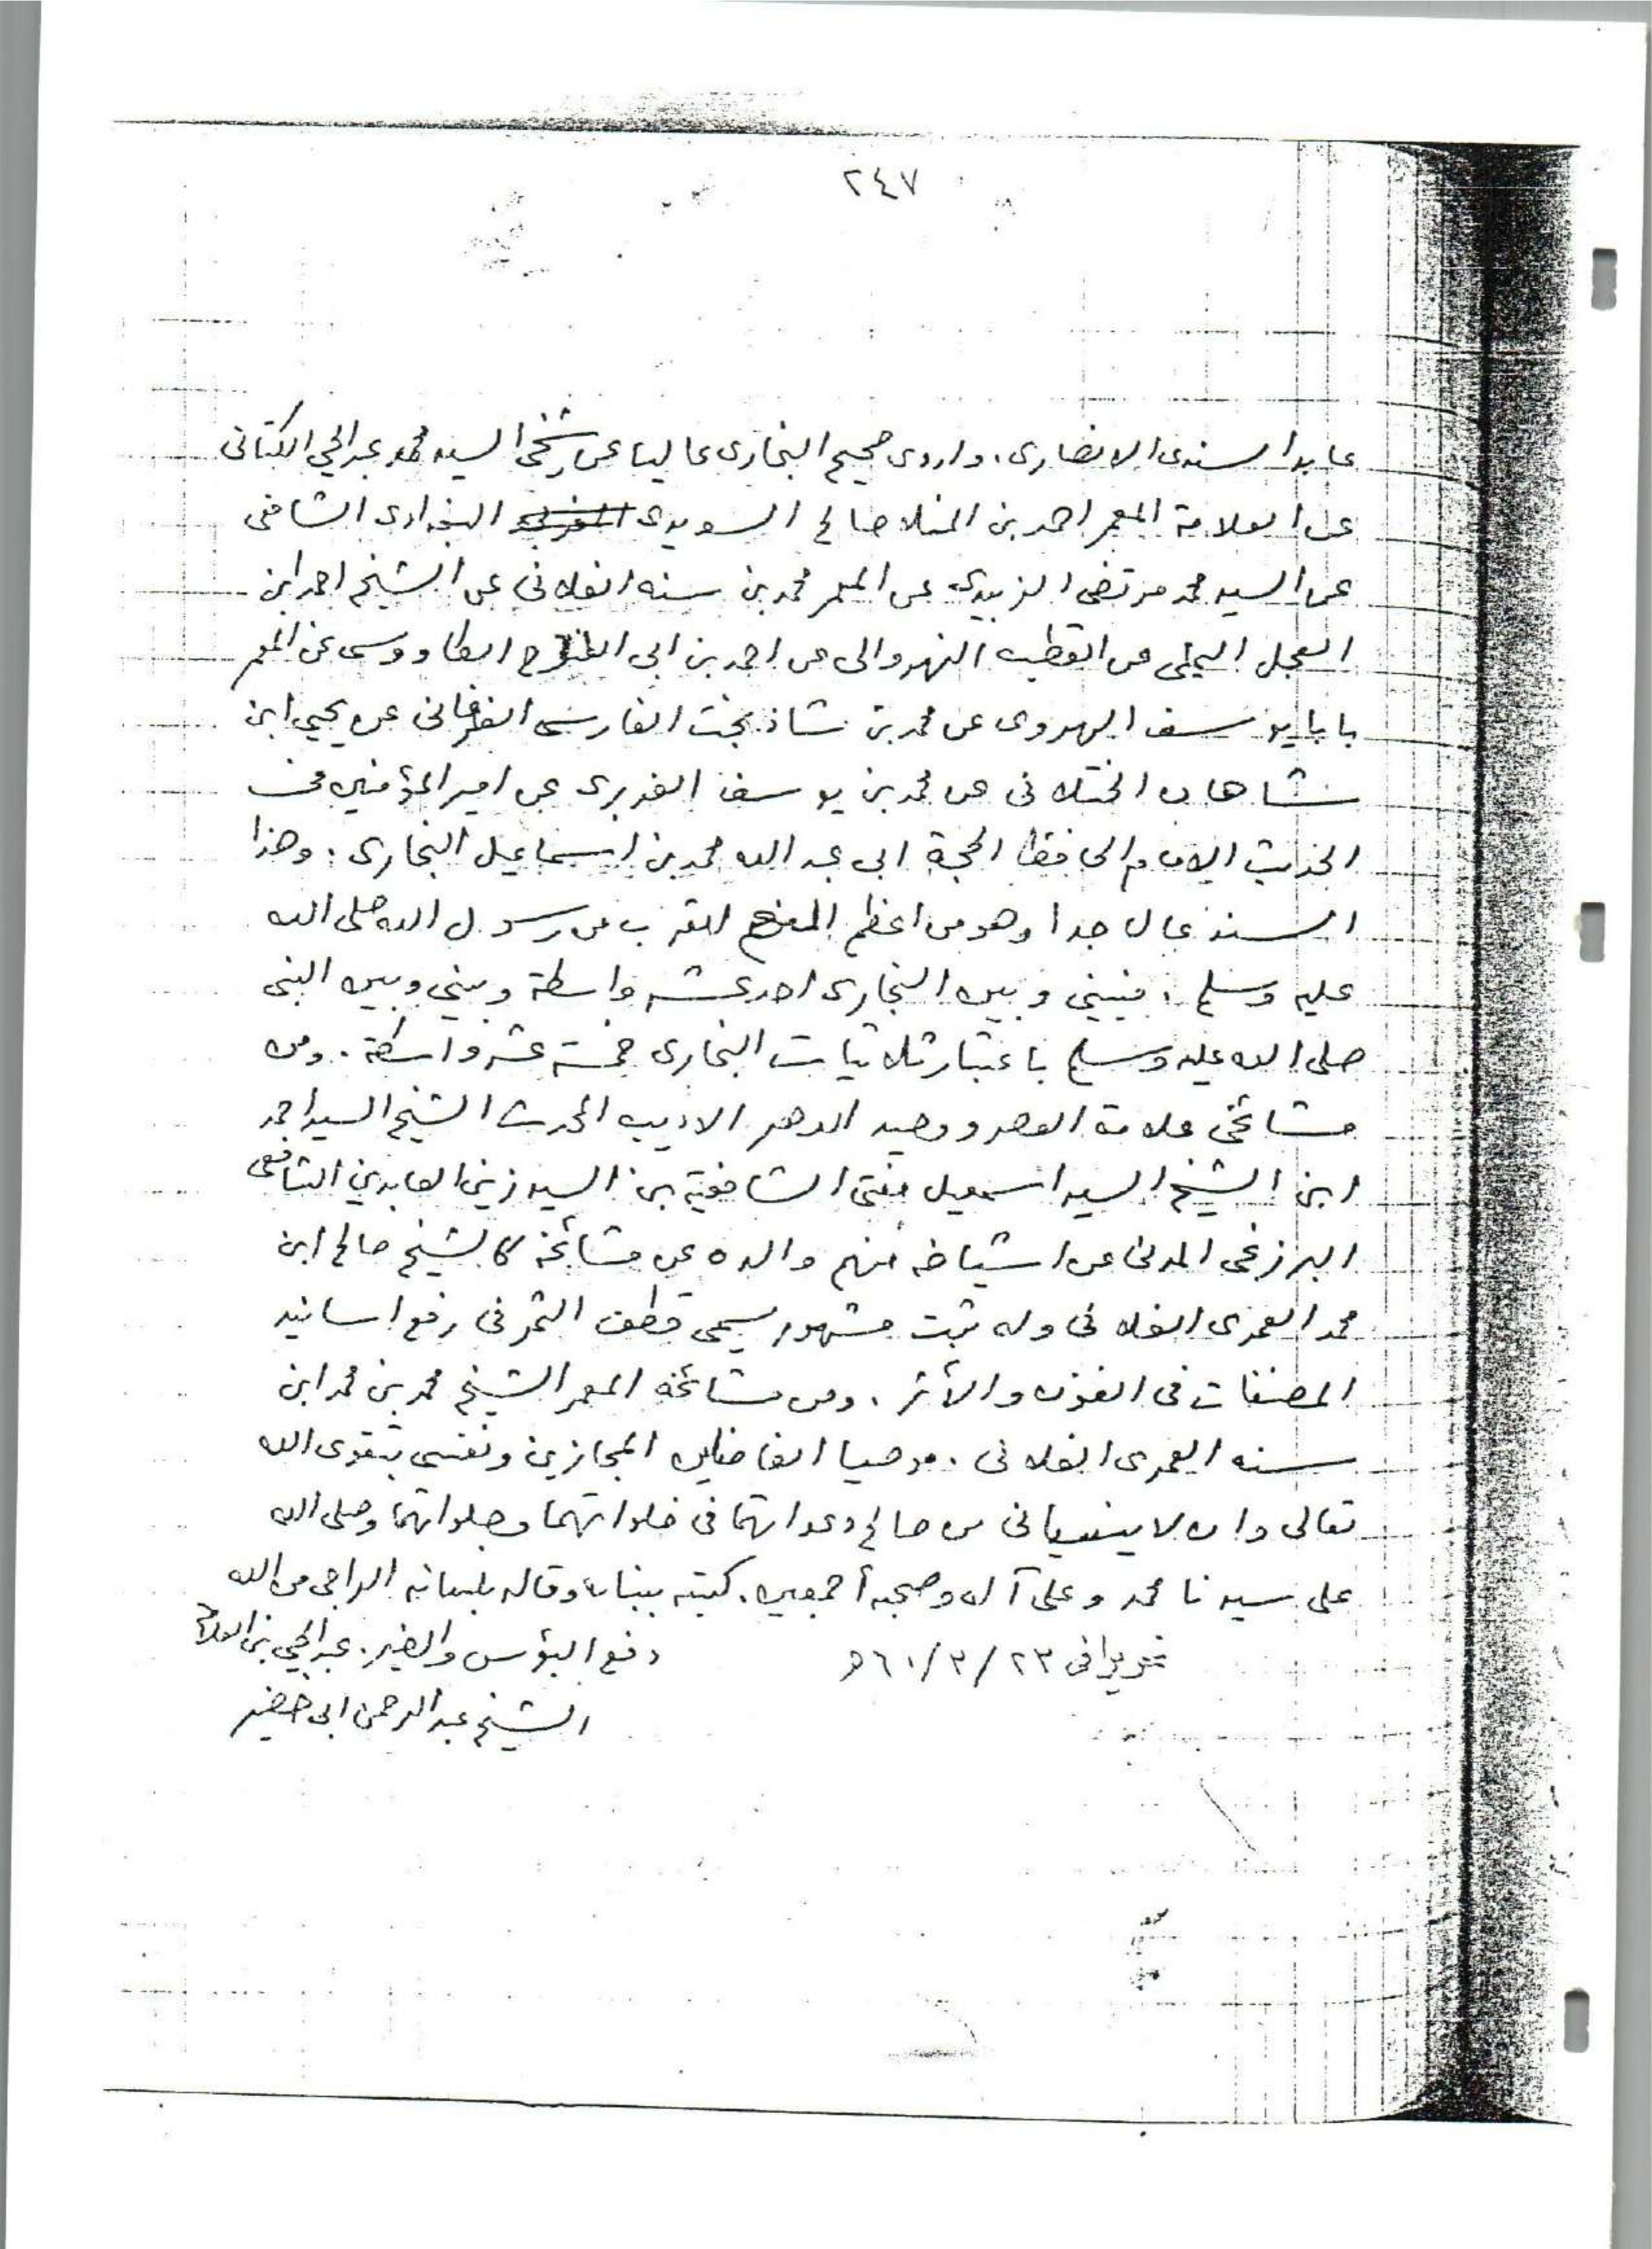 ٢٤٧
عابد السندى الانصارى. واروى صحيح البخارى عاليا عن شيخى السيد محمد عبدالحي الكتانى
عن العلامة المعمر احمد بن المنلا صالح السويدى البغدادى الشافعى
عن السيد محمد مرتضى الزبيدى عن المعمر محمد بن سنه الفلانى عن الشيخ احمد ابن
العجل اليمنى عن القطب النهروالى عن احمد بن ابى الفتوح الطاووسى عن المعمر
بابا يوسف الهروى عن محمد بن شاذ بخت الفارسى الفرغانى عن يحيى ابن
شاهان الختلانى عن محمد بن يوسف الفربرى عن امير المؤمنين فى
الحديث الامام الحافظ الحجة ابى عبد الله محمد بن اسماعيل البخارى. وهذا
السند عال جدا وهو من اعظم المنح للقرب من رسول الله صلى الله
عليه وسلم. فبينى وبين البخارى احد عشر واسطة وبينى وبين النبى
صلى الله عليه وسلم باعتبار ثلاثيات البخارى خمسة عشر واسطة. ومن
مشائخى علامة العصر ووحيد الدهر الاديب المحدث الشيخ السيد احمد
ابن الشيخ السيد اسمعيل مفتى الشافعية بن السيد زين العابدين الشافعى
البرزنجى المدنى عن اشياخه منهم والده عن مشائخه كالشيخ صالح ابن
محمد العمرى الفلانى وله ثبت مشهور يسمى قطف الثمر فى رفع اسانيد
المصنفات فى الفنون والأثر. ومن مشائخه المعمر الشيخ محمد بن محمد ابن
سنه العمرى الفلانى. موصيا الفاضلين المجازين ونفسى بتقوى الله
تعالى وان لا ينسيانى من صالح دعواتهما فى خلواتهما وجلواتهما وصلى الله
على سيدنا محمد وعلى آله وصحبه أجمعين. كتبه ببنانه وقاله بلسانه الراجى من الله
تحريرا فى ٢٣/٣/٦١ ه دفع البؤس والضير. عبدالحي بن العلامة
الشيخ عبدالرحمن ابى خضير